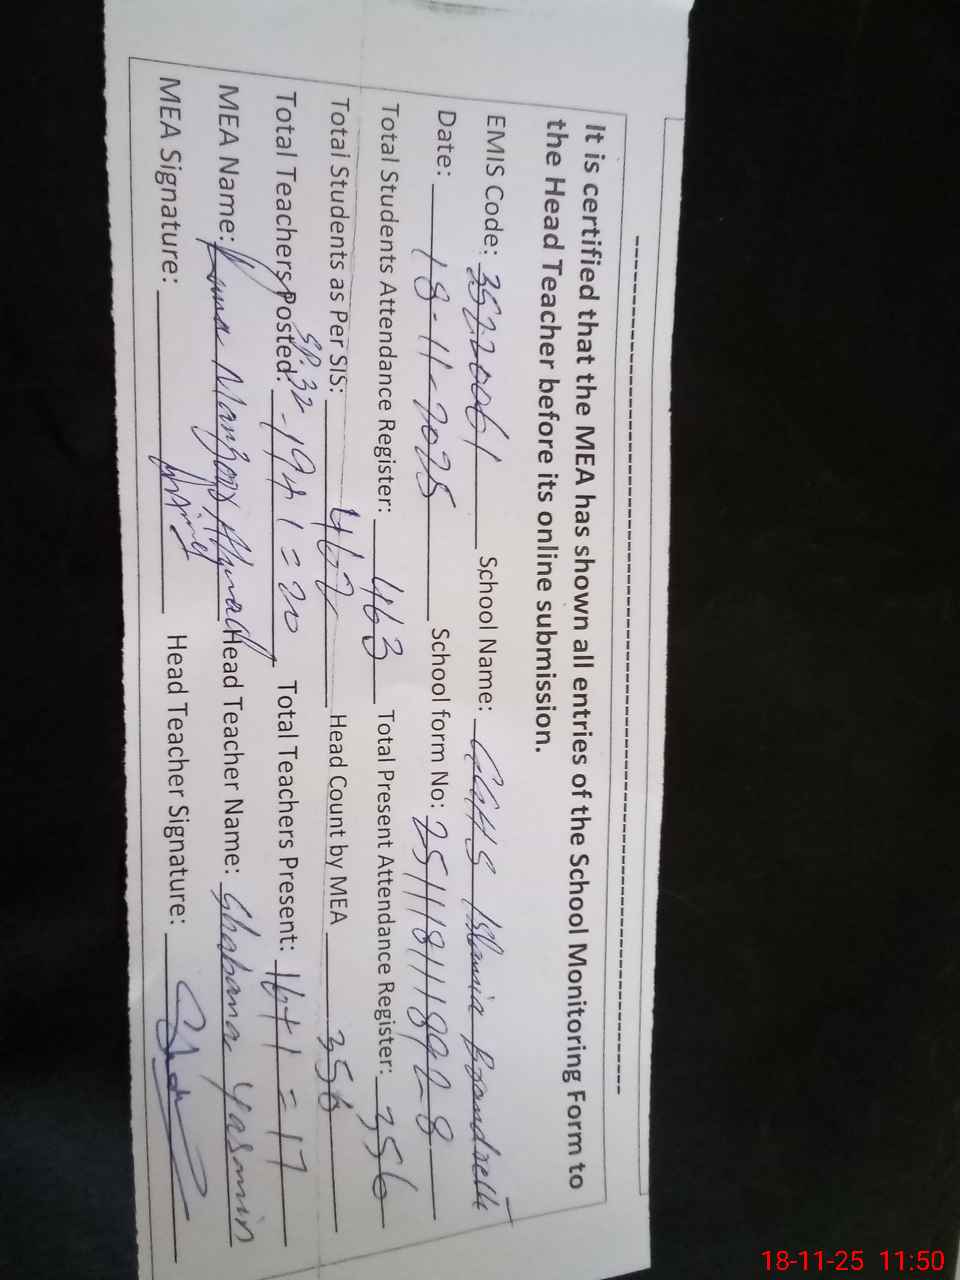 It is certified that the MEA has shown all entries of the School Monitoring Form to
the Head Teacher before its online submission.
EMIS Code: 35220061 School Name: GGHS Islamia
Date: 18-11-2025 School form No:
Total Students Attendance Register: 463 Total Present Attendance Register: 356
Total Students as Per SIS: 462 Head Count by MEA 356
Total Teachers Posted: 32-19+1=20 Total Teachers Present: 16+1=17
MEA Name: Ahmad Head Teacher Name: Shabana Yasmin
MEA Signature: Head Teacher Signature:
18-11-25 11:50